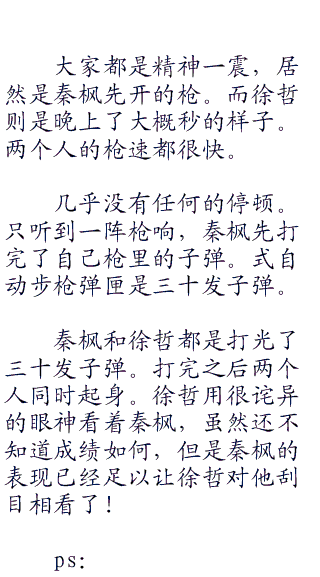 大家都是精神一震，居
然是秦枫先开的枪。而徐哲
则是晚上了大概秒的样子。
两个人的枪速都很快。
几乎没有任何的停顿。
只听到一阵枪响，秦枫先打
完了自己枪里的子弹。式自
动步枪弹匣是三十发子弹。
秦枫和徐哲都是打光了
三十发子弹。打完之后两个
人同时起身。徐哲用很诧异
的眼神看着秦枫，虽然还不
知道成绩如何，但是秦枫的
表现已经足以让徐哲对他刮
目相看了！
ps：